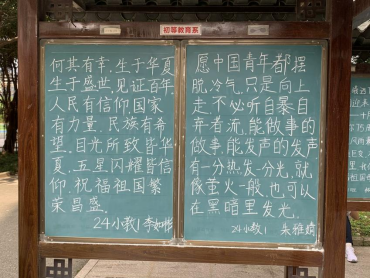 初等教育系
何其有幸,生于华夏
生于盛世,见证百年,
人民有信仰国家
有力量,民族有希
望。目光所致皆华
夏,五星闪耀皆信
仰,祝福祖国繁
荣昌盛。
24小教1
愿中国青年都摆
脱冷气,只是向上
走,不必听自暴自
弃者流,能做事的
做事,能发声的发声
有一分热发一分光,就
像萤火一般,也可以
在黑暗里发光。
24小教1 朱雅婧